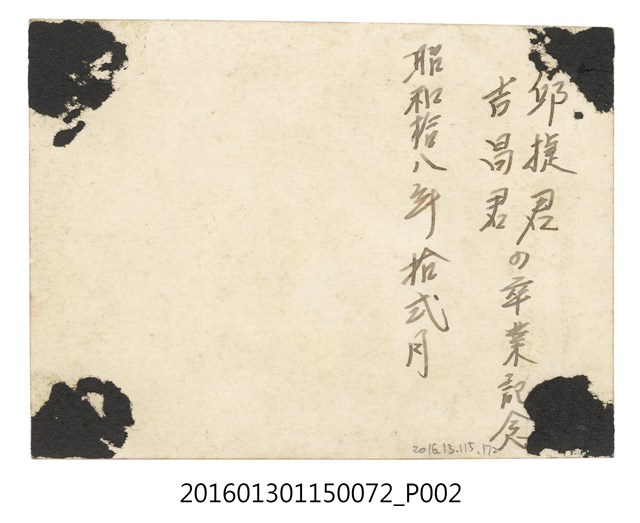 邱捷君の卒業記念
吉昌君
昭和拾八年拾弐月
2016.13.115.172
201601301150072_P002